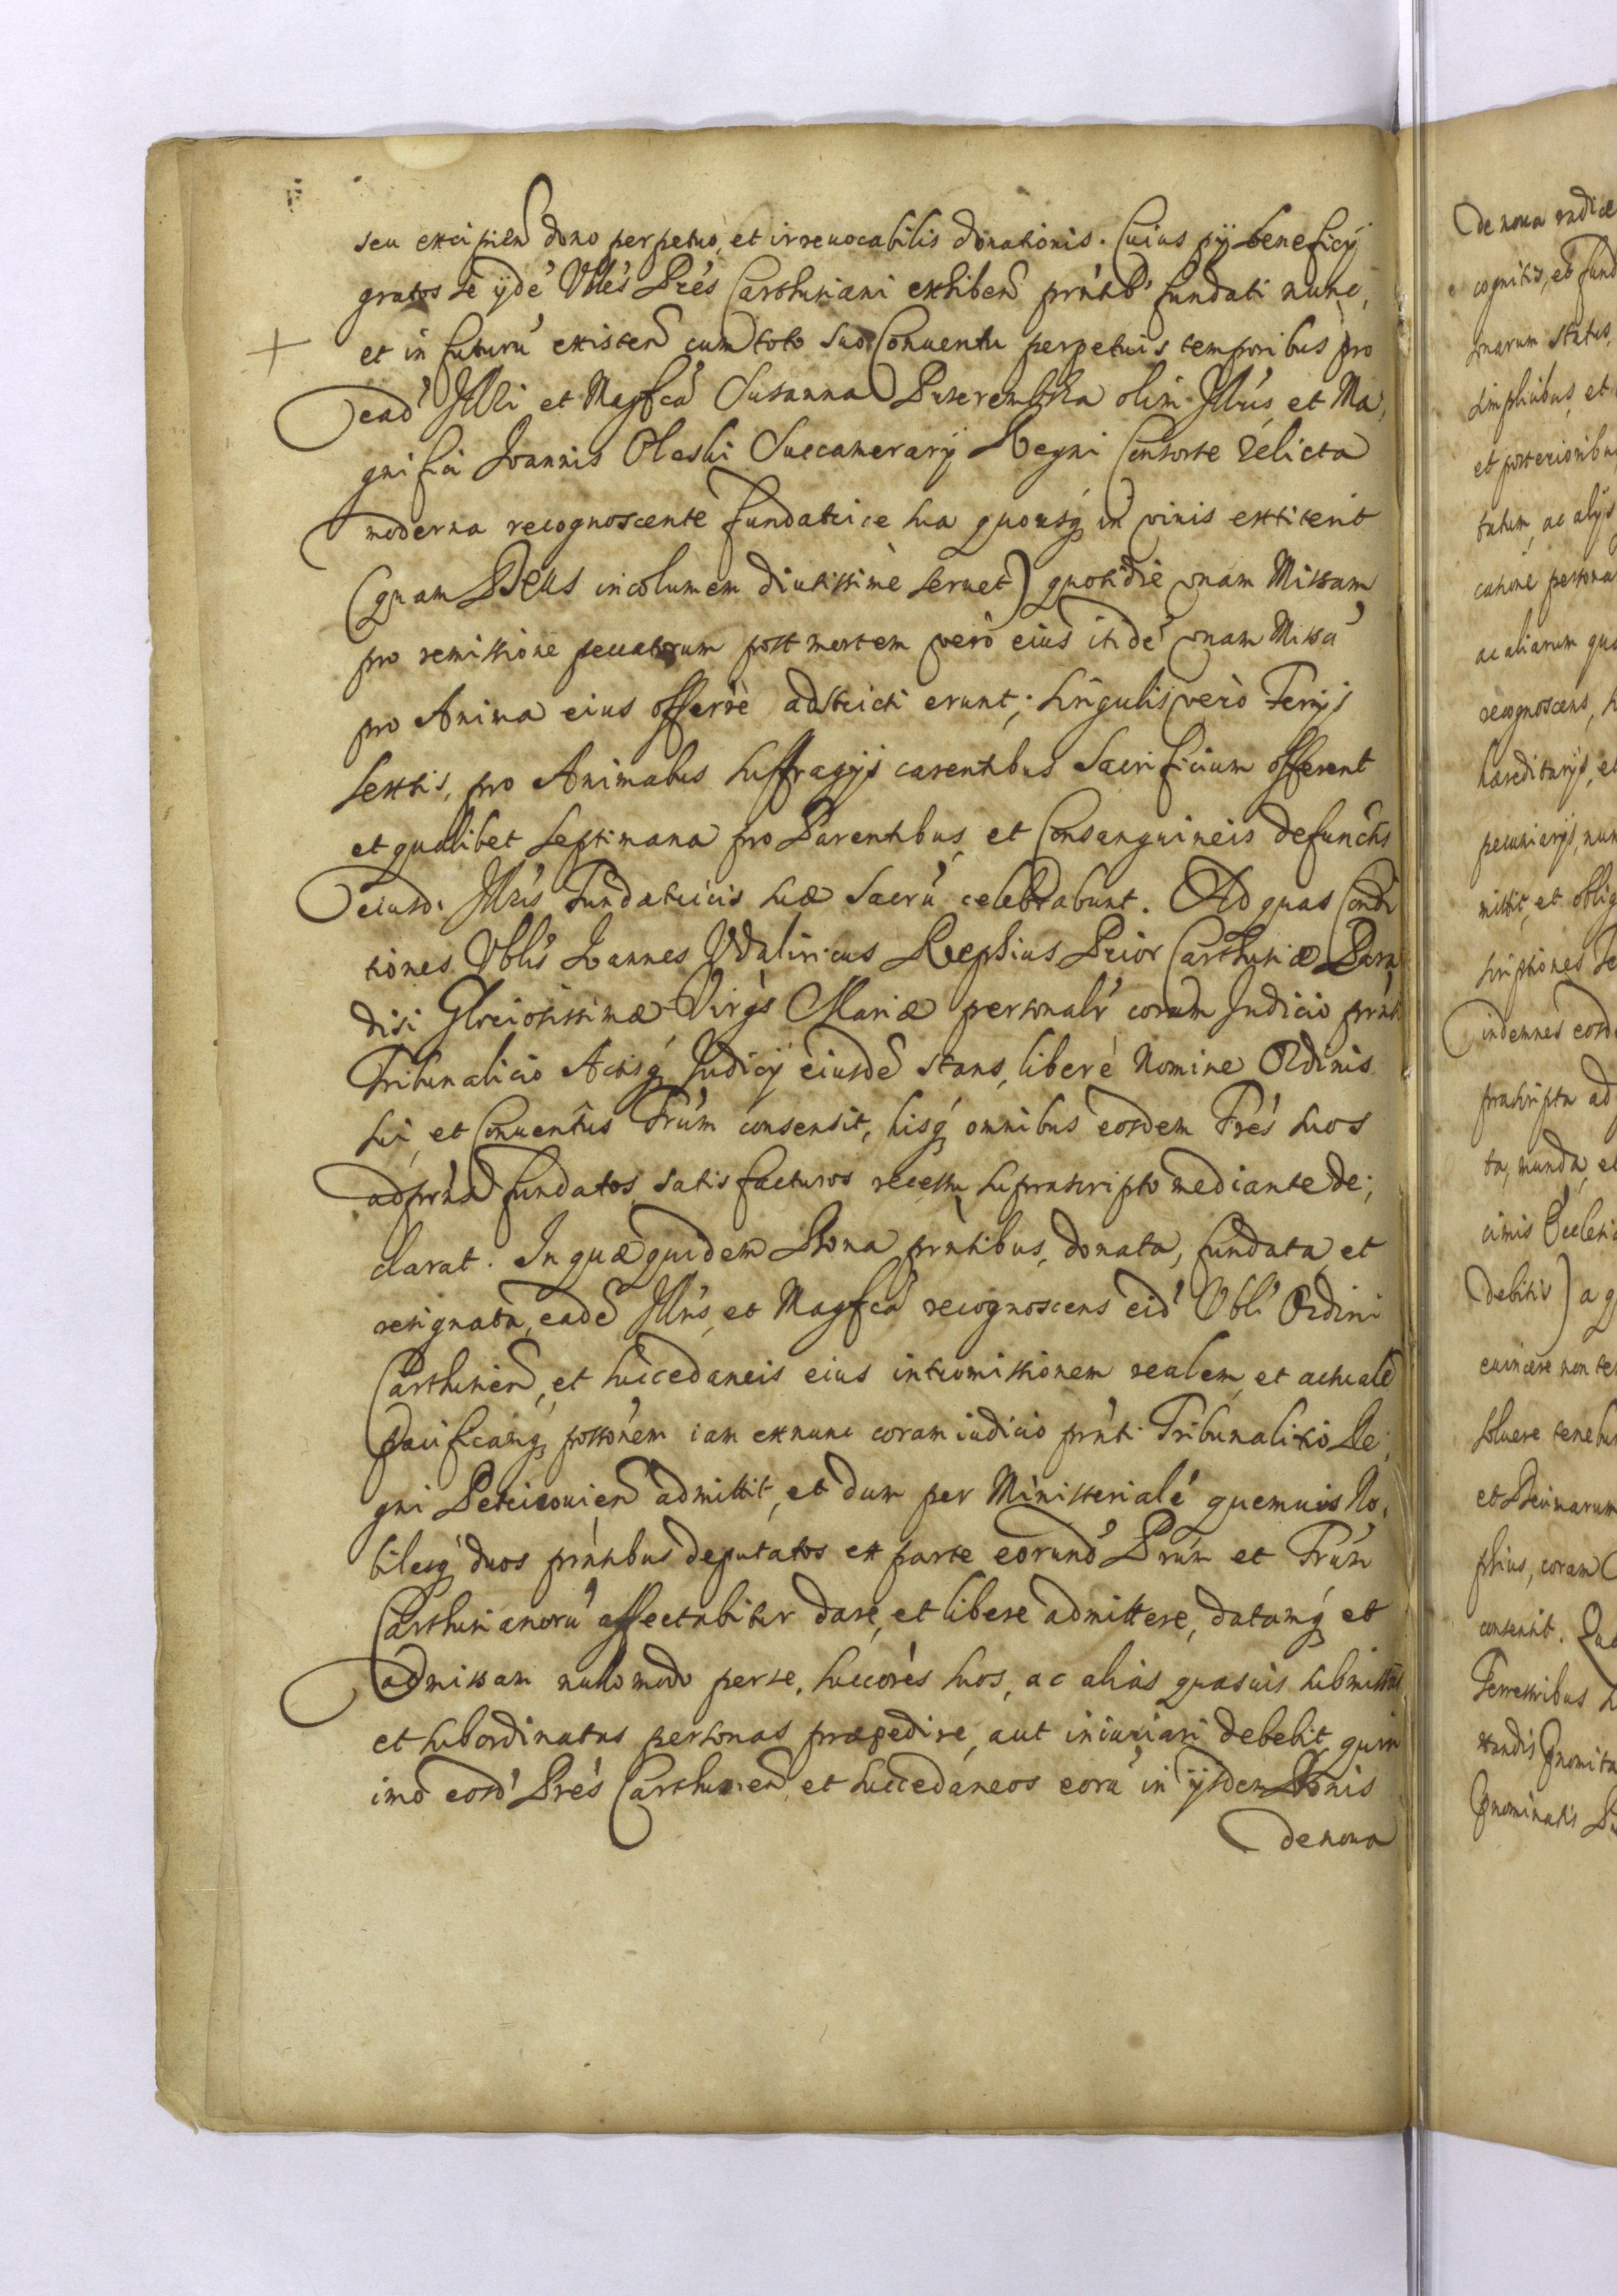 seu excipien dono perpetuo, et irreuocabilis donationis. Cuius pij beneficij
gratos se ijde Vbles Pres Carthusiani exhiben prntib' fundati nunc,
et in futuru existen cum toto suo Conuentu perpetuis temporibus pro
ead' Illri et Magfca Susanna Przerembska olim Illris et Ma,
gnifici Joannis Oleski Succamerarij Regni Consorte relicta
moderna recognoscente fundatrice sua quousq in viuis extiterit
(quam Deus incolumem diutissime seruet) quotidie vnam Missam
pro remissione peccatorum post mortem vero eius itide vnam Missa
pro Anima eius offerre adstricti erunt; singulis vero Ferijs
sextis, pro Animabus suffragijs carentibus Sacrificium offerent
et qualibet septimana pro Parentibus et Consanguineis defunctis
eiusd. Illris Fundatricis suae Sacru celebrabunt. Ad quas Condi
tiones Vblis Joannes Vdalricus Rephius Prior Carthusiae Para
disi Gloriosissimae Virgs Mariae personalr coram Judicio prnti
Tribunalicio Actisq Judicij eiusde stans, libere nomine Ordinis
sui, et Conuentus Frum consensit, hisq omnibus eosdem Fres suos
ad prns fundatos satisfacturos recessu suprascripto mediante de;
clarat. In quae quidem Bona prntibus, donata, fundata, et
resignata, eade Illris, et Magfca recognoscens eid' Vbli Ordini
Carthusien, et succedaneis eius intromissionem realem, et actuale
pacificamq possonem iam exnunc coram iudicio prnti Tribunalitio Re;
gni Petricouien admittit, et dum per Ministeriale quemuis No,
bilesq duos prntibus deputatos ex parte eorund' Prum et Frum
Carthusianoru affectabitur dare, et libere admittere, datamq et
admissam nullo modo per se, succores suos, ac alias quasuis submissas
et subordinatas personas praepedire, aut iniuriari debebit, quin
imo eosd' Pres Carthusien, et succedaneos eoru in ijsdem Bonis
de noua
De noua radice
cognitis, et fund
marum status,
simplicibus, et
et posterioribus
tutum, ac alijs
catione persona
ac aliarum qua
recognoscens, s
haereditarijs, et
pecuniarijs, nun
mittit, et oblig
scriptiones
indemnes eosd
praescripta ad
ta, munda, et
cimis Ecclesi
debitis) a q
euincere non te
soluere tenebi
et Decimarum
phius, coram
consensit. Qua
Terrestribus